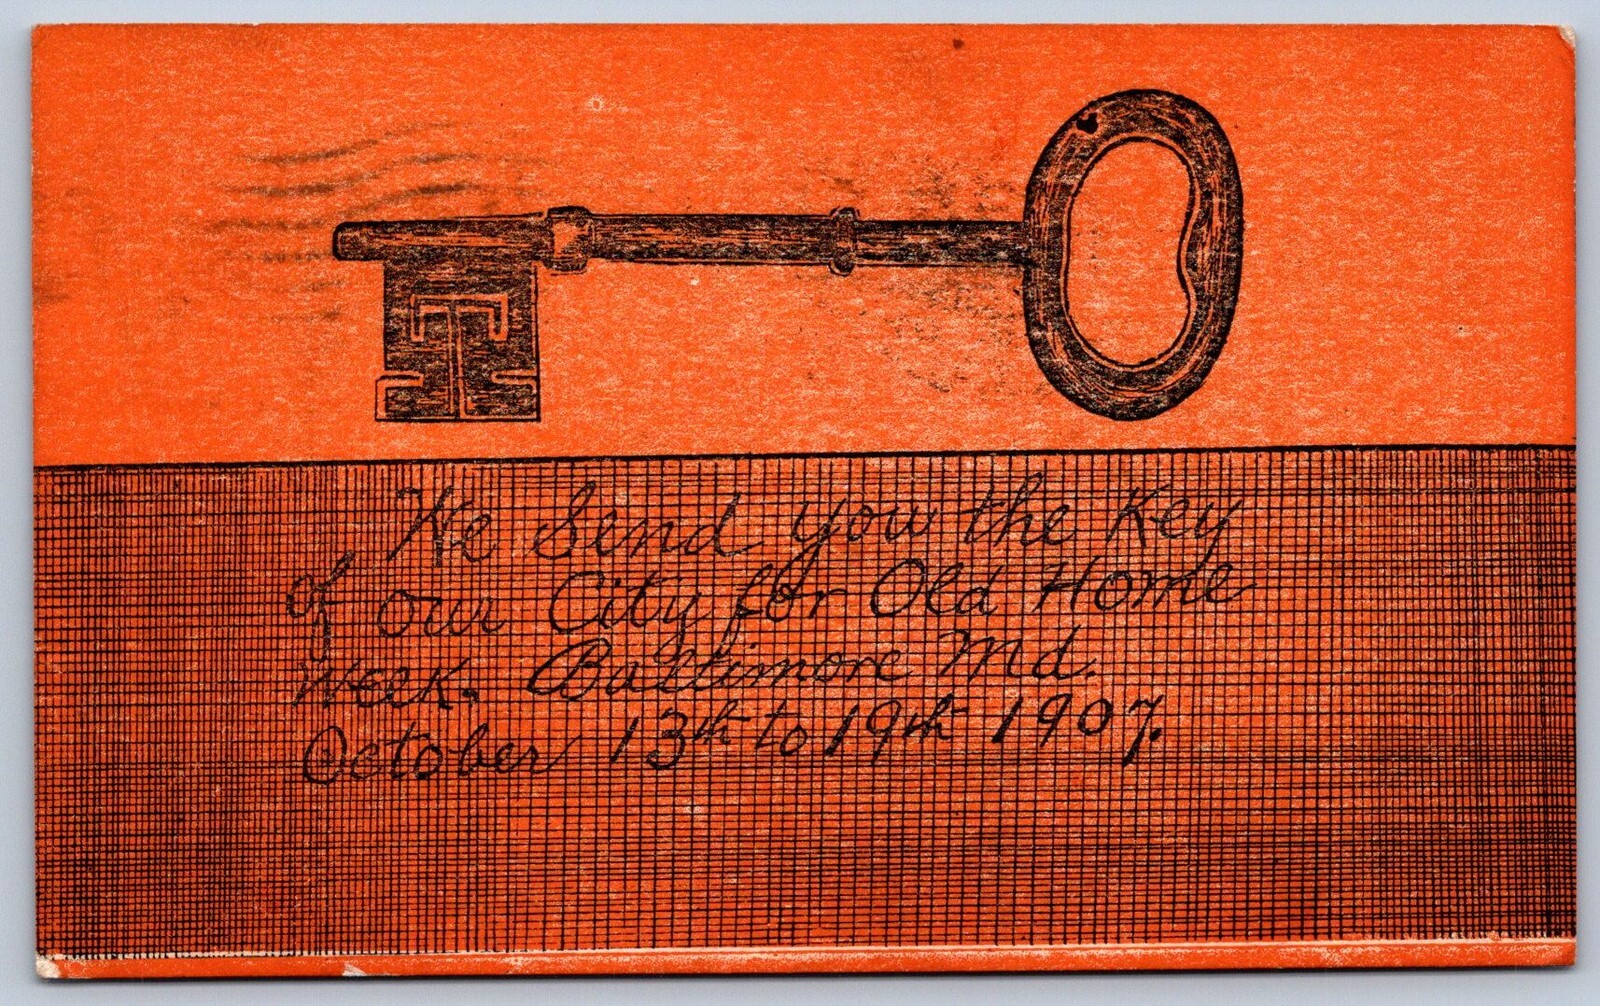 We Send you the Key
of our City for Old Home
Week. Baltimore Md.
October 13th to 19th 1907.